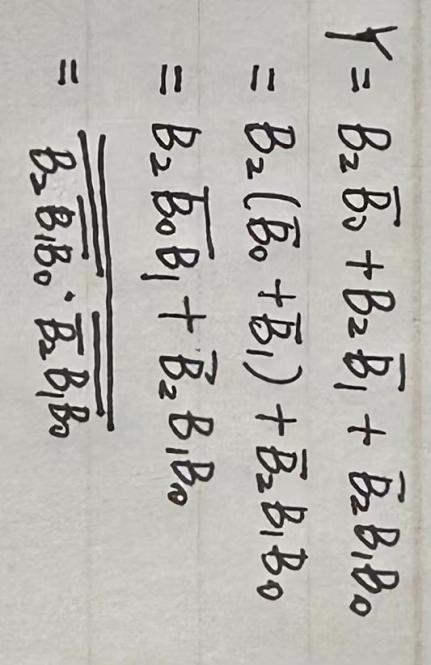 Y = B₂B̅₀ + B₂B̅₁ + B̅₂B₁B₀
= B₂(B̅₀ + B̅₁) + B̅₂B₁B₀
= B₂\overline{B₀B₁} + B̅₂B₁B₀
= \overline{\overline{B₂\overline{B₁B₀}} · \overline{B̅₂B₁B₀}}